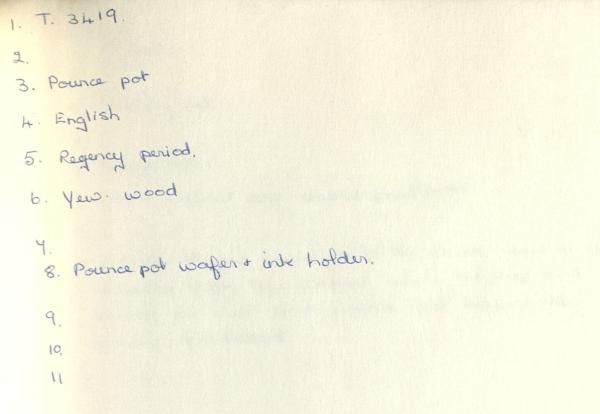 1. T. 3419.
2.
3. Pounce pot
4. English
5. Regency period.
6. Yew. wood
7.
8. Pounce pot wafer + ink holder.
9.
10.
11